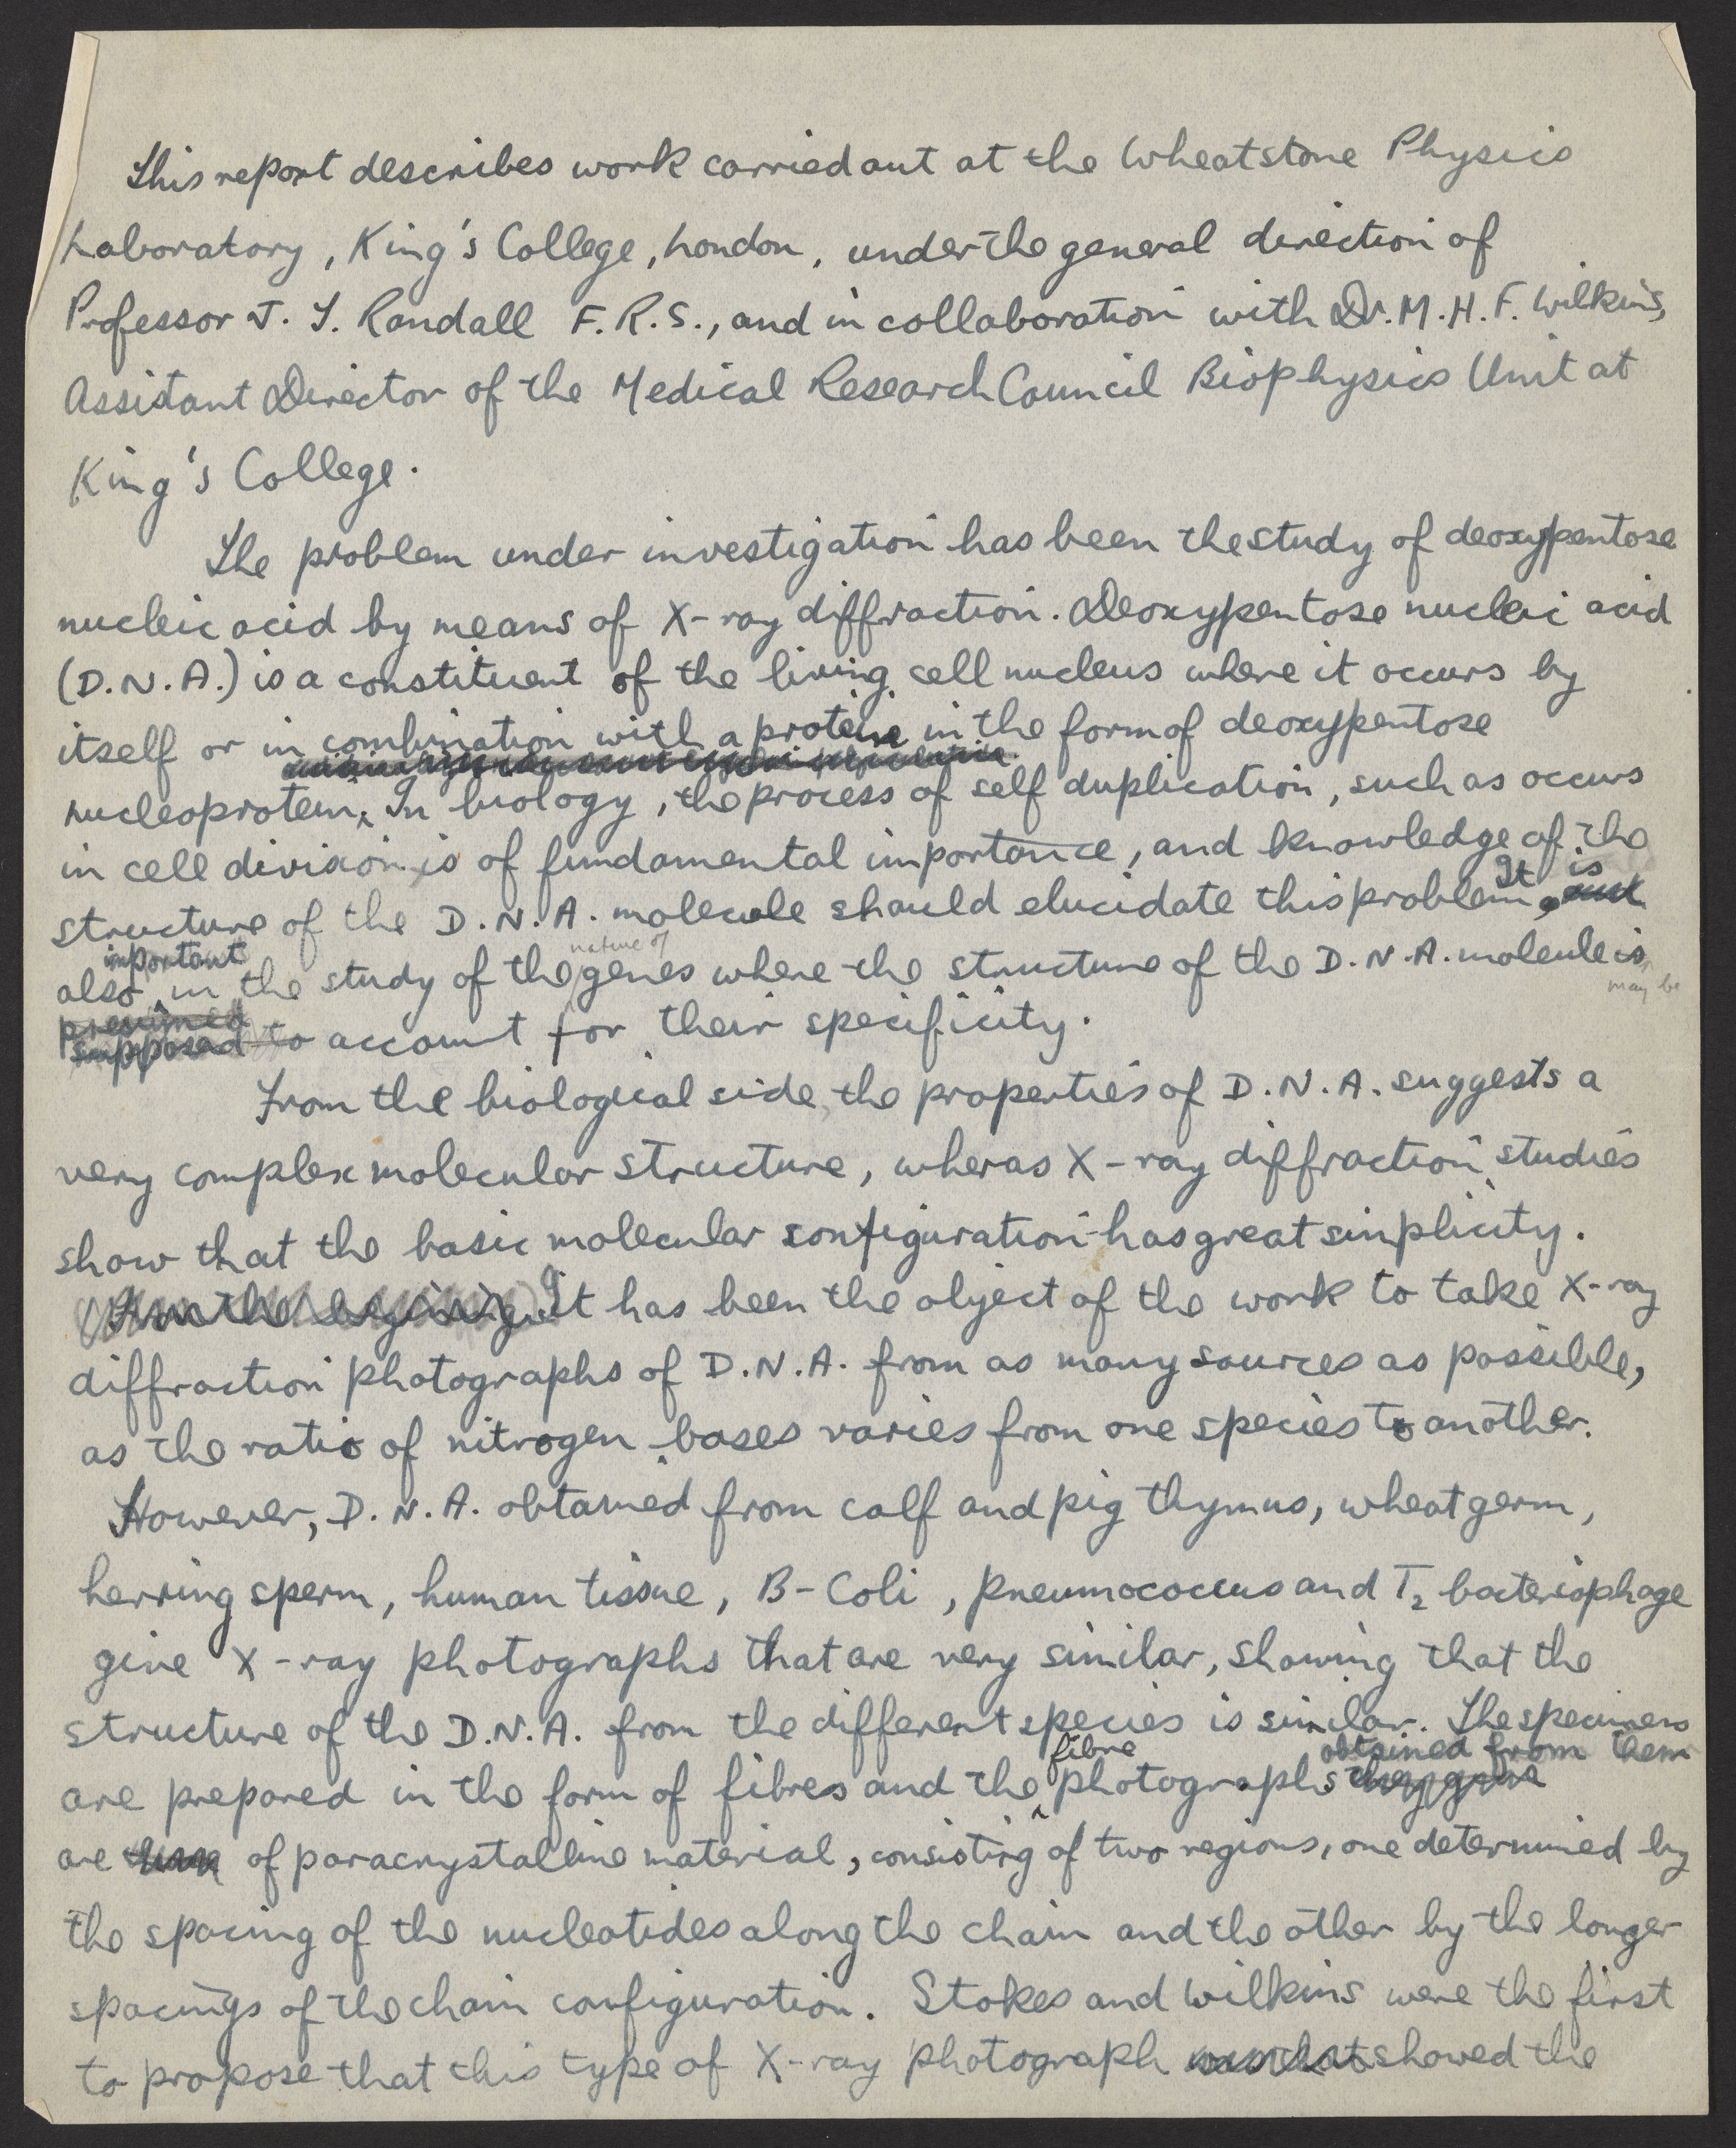 This report describes work carried out at the Wheatstone Physics
Laboratory, King's College, London, under the general direction of
Professor J. T. Randall F.R.S., and in collaboration with Dr. M.H.F. Wilkins,
Assistant Director of the Medical Research Council Biophysics Unit at
King's College.
The problem under investigation has been the study of deoxypentose
nucleic acid by means of X-ray diffraction. Deoxypentose nucleic acid
(D.N.A.) is a constituent of the living cell nucleus where it occurs by
itself or in combination with a protein in the form of deoxypentose
nucleoprotein. In biology, the process of self duplication, such as occurs
in cell division is of fundamental importance, and knowledge of the
structure of the D.N.A. molecule should elucidate this problem. It is
important
nature of
also in the study of the genes where the structure of the D.N.A. molecule is
may be
presumed
supposed to account for their specificity.
From the biological side the properties of D.N.A. suggests a
very complex molecular structure, wheras X-ray diffraction studies
show that the basic molecular configuration has great simplicity.
From the begining It has been the object of the work to take X-ray
diffraction photographs of D.N.A. from as many sources as possible,
as the ratio of nitrogen bases varies from one species to another.
However, D.N.A. obtained from calf and pig thymus, wheat germ,
herring sperm, human tissue, B-Coli, pneumococcus and T2 bacteriophage
give X-ray photographs that are very similar, showing that the
structure of the D.N.A. from the different species is similar. The specimens
fibre
obtained from them
are prepared in the form of fibres and the photographs they give
are of paracrystalline material, consisting of two regions, one determined by
the spacing of the nucleotides along the chain and the other by the longer
spacings of the chain configuration. Stokes and Wilkins were the first
to propose that this type of X-ray photograph showed the